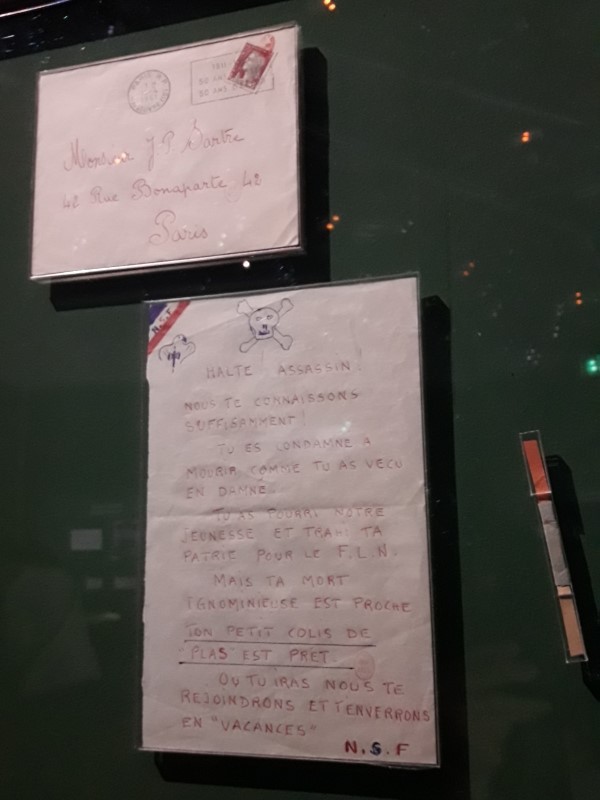 Monsieur J. P. Sartre
42 Rue Bonaparte, 42
Paris
N.S.F
HALTE ASSASSIN!
NOUS TE CONNAISSONS
SUFFISAMMENT!
TU ES CONDAMNE A
MOURIR COMME TU AS VECU
EN DAMNÉ.
TU AS POURRI NOTRE
JEUNESSE ET TRAHI TA
PATRIE POUR LE F.L.N.
MAIS TA MORT
IGNOMINIEUSE EST PROCHE
TON PETIT COLIS DE
"PLAS" EST PRET.
OU TU IRAS NOUS TE
REJOINDRONS ET T'ENVERRONS
EN "VACANCES"
N.S.F